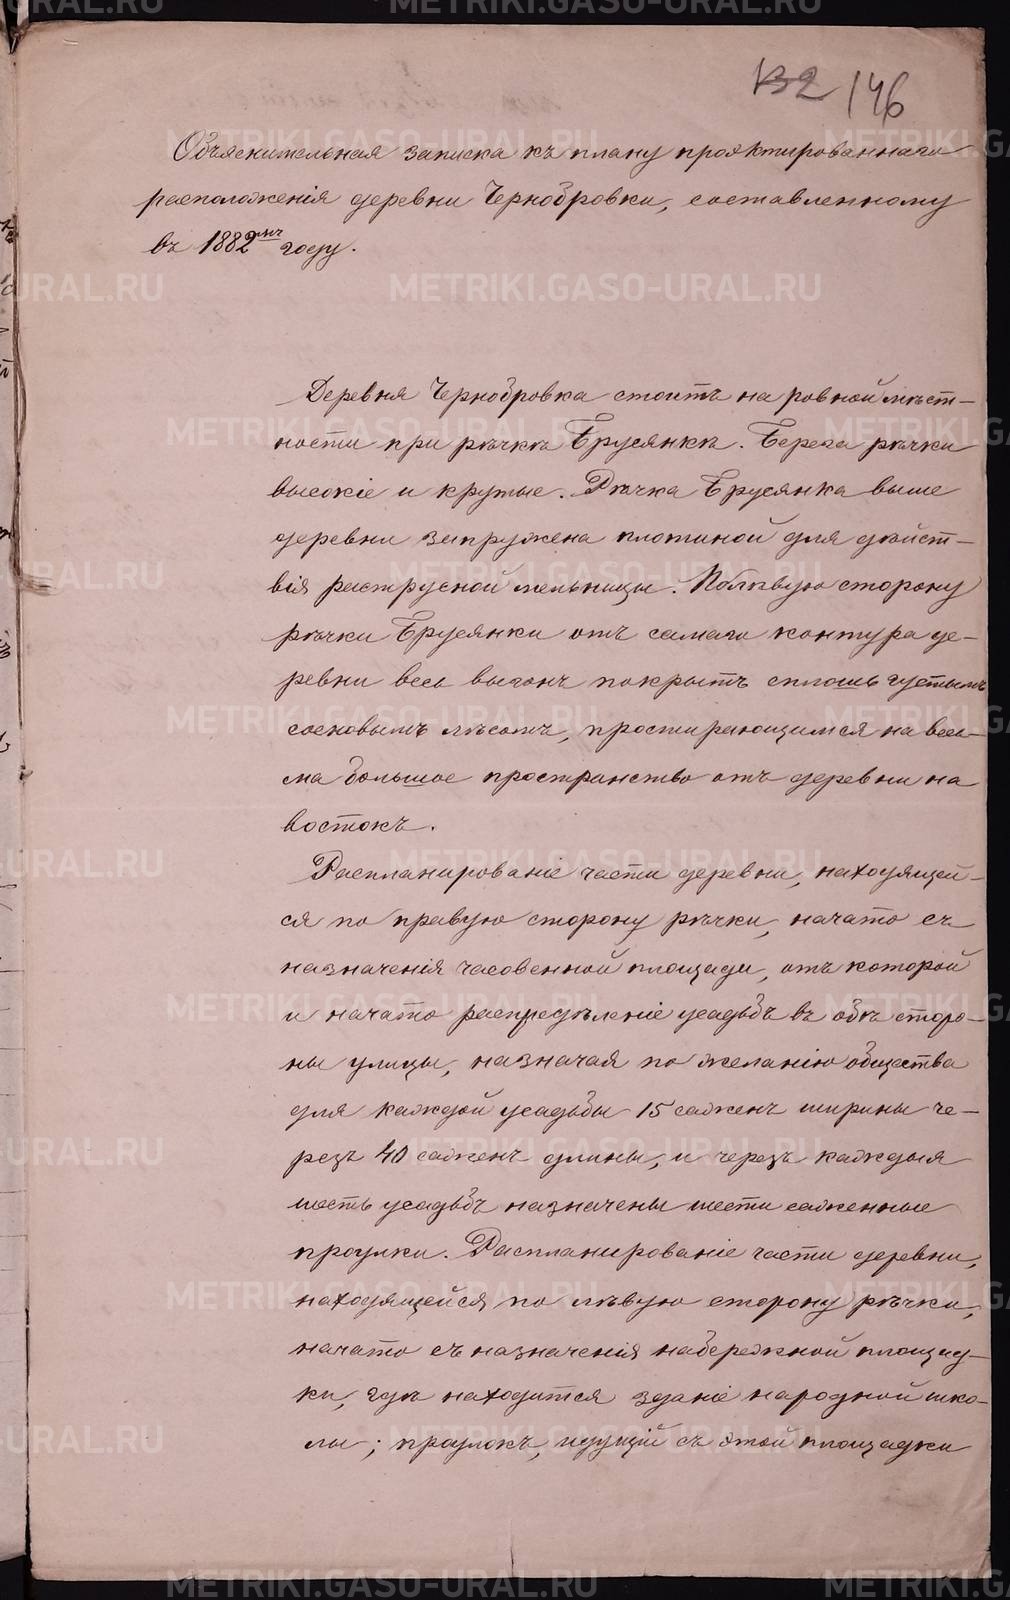 132 146
Объяснительная записка къ плану проэктированнаго
расположенія деревни Чернобровки, составленному
въ 1882мъ году.
Деревня Чернобровка стоитъ на ровной мѣст-
ности при рѣчкѣ Брусянкѣ. Берега рѣчки
высокіе и крутые. Рѣчка Брусянка выше
деревни запружена плотиной для дѣйст-
вія раструсной мельницы. По лѣвую сторону
рѣчки Брусянки отъ самаго контура де-
ревни весь выгонъ покрытъ сплошь густымъ
сосновымъ лѣсомъ, простирающимся на весь-
ма большое пространство отъ деревни на
востокъ.
Распланированіе части деревни, находящей-
ся по правую сторону рѣчки, начато съ
назначенія часовенной площади, отъ которой
и начато распредѣленіе усадьбъ въ обѣ сторо-
ны улицы, назначая по желанію общества
для каждой усадьбы 15 саженъ ширины че-
резъ 40 саженъ длины, и черезъ каждыя
шесть усадьбъ назначены шести саженные
проулки. Распланированіе части деревни,
находящейся по лѣвую сторону рѣчки,
начато съ назначенія набережной площад-
ки, гдѣ находится зданіе народной шко-
лы; проулокъ, идущій съ этой площадки
METRIKI.GASO-URAL.RU